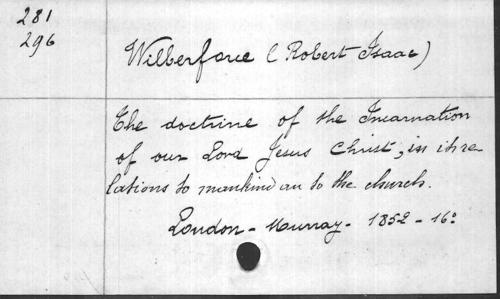 281
296
Wilberforce (Robert Isaac)
The doctrine of the Incarnation
of our Lord Jesus Christ, in its re
lations to mankind an to the church.
London - Murray - 1852 - 16º